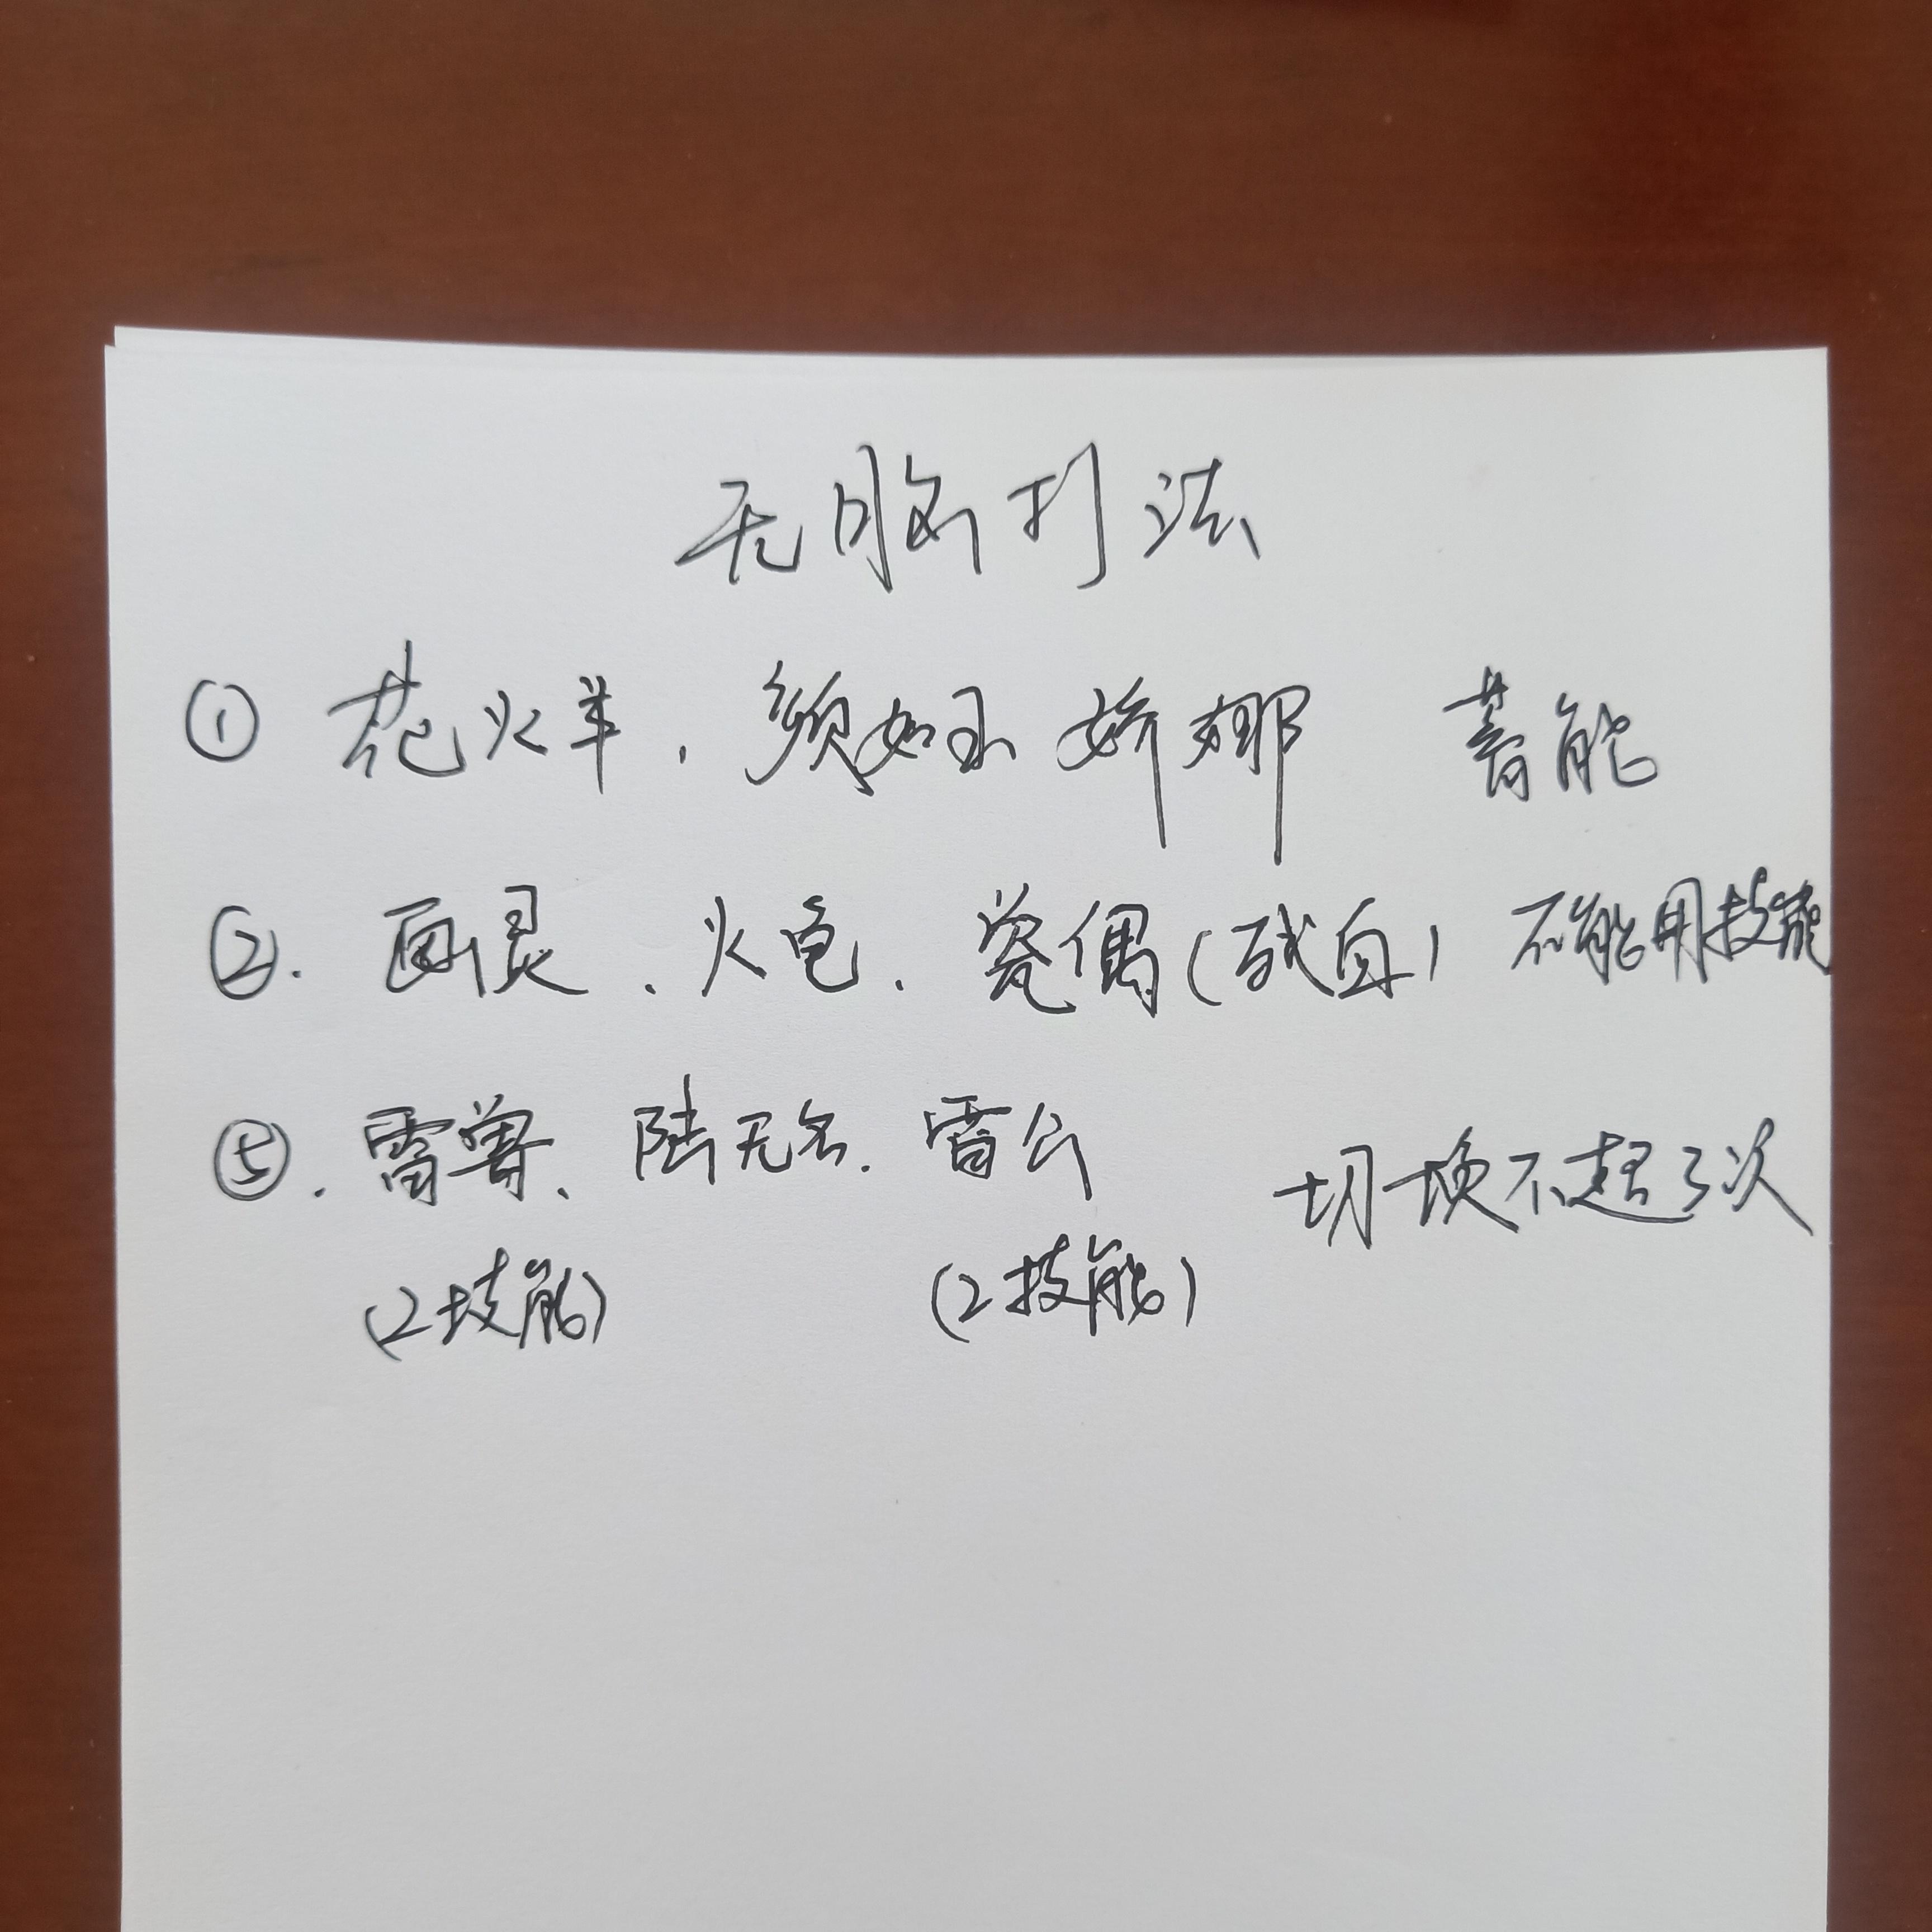 无脑打法
① 花火羊、颜如玉 娇娜 蓄能
②. 画灵、火色、瓷偶(残血) 不能用技能
⑤. 雷兽、陆无名、雷公 切换不超3次
(2技能) (2技能)